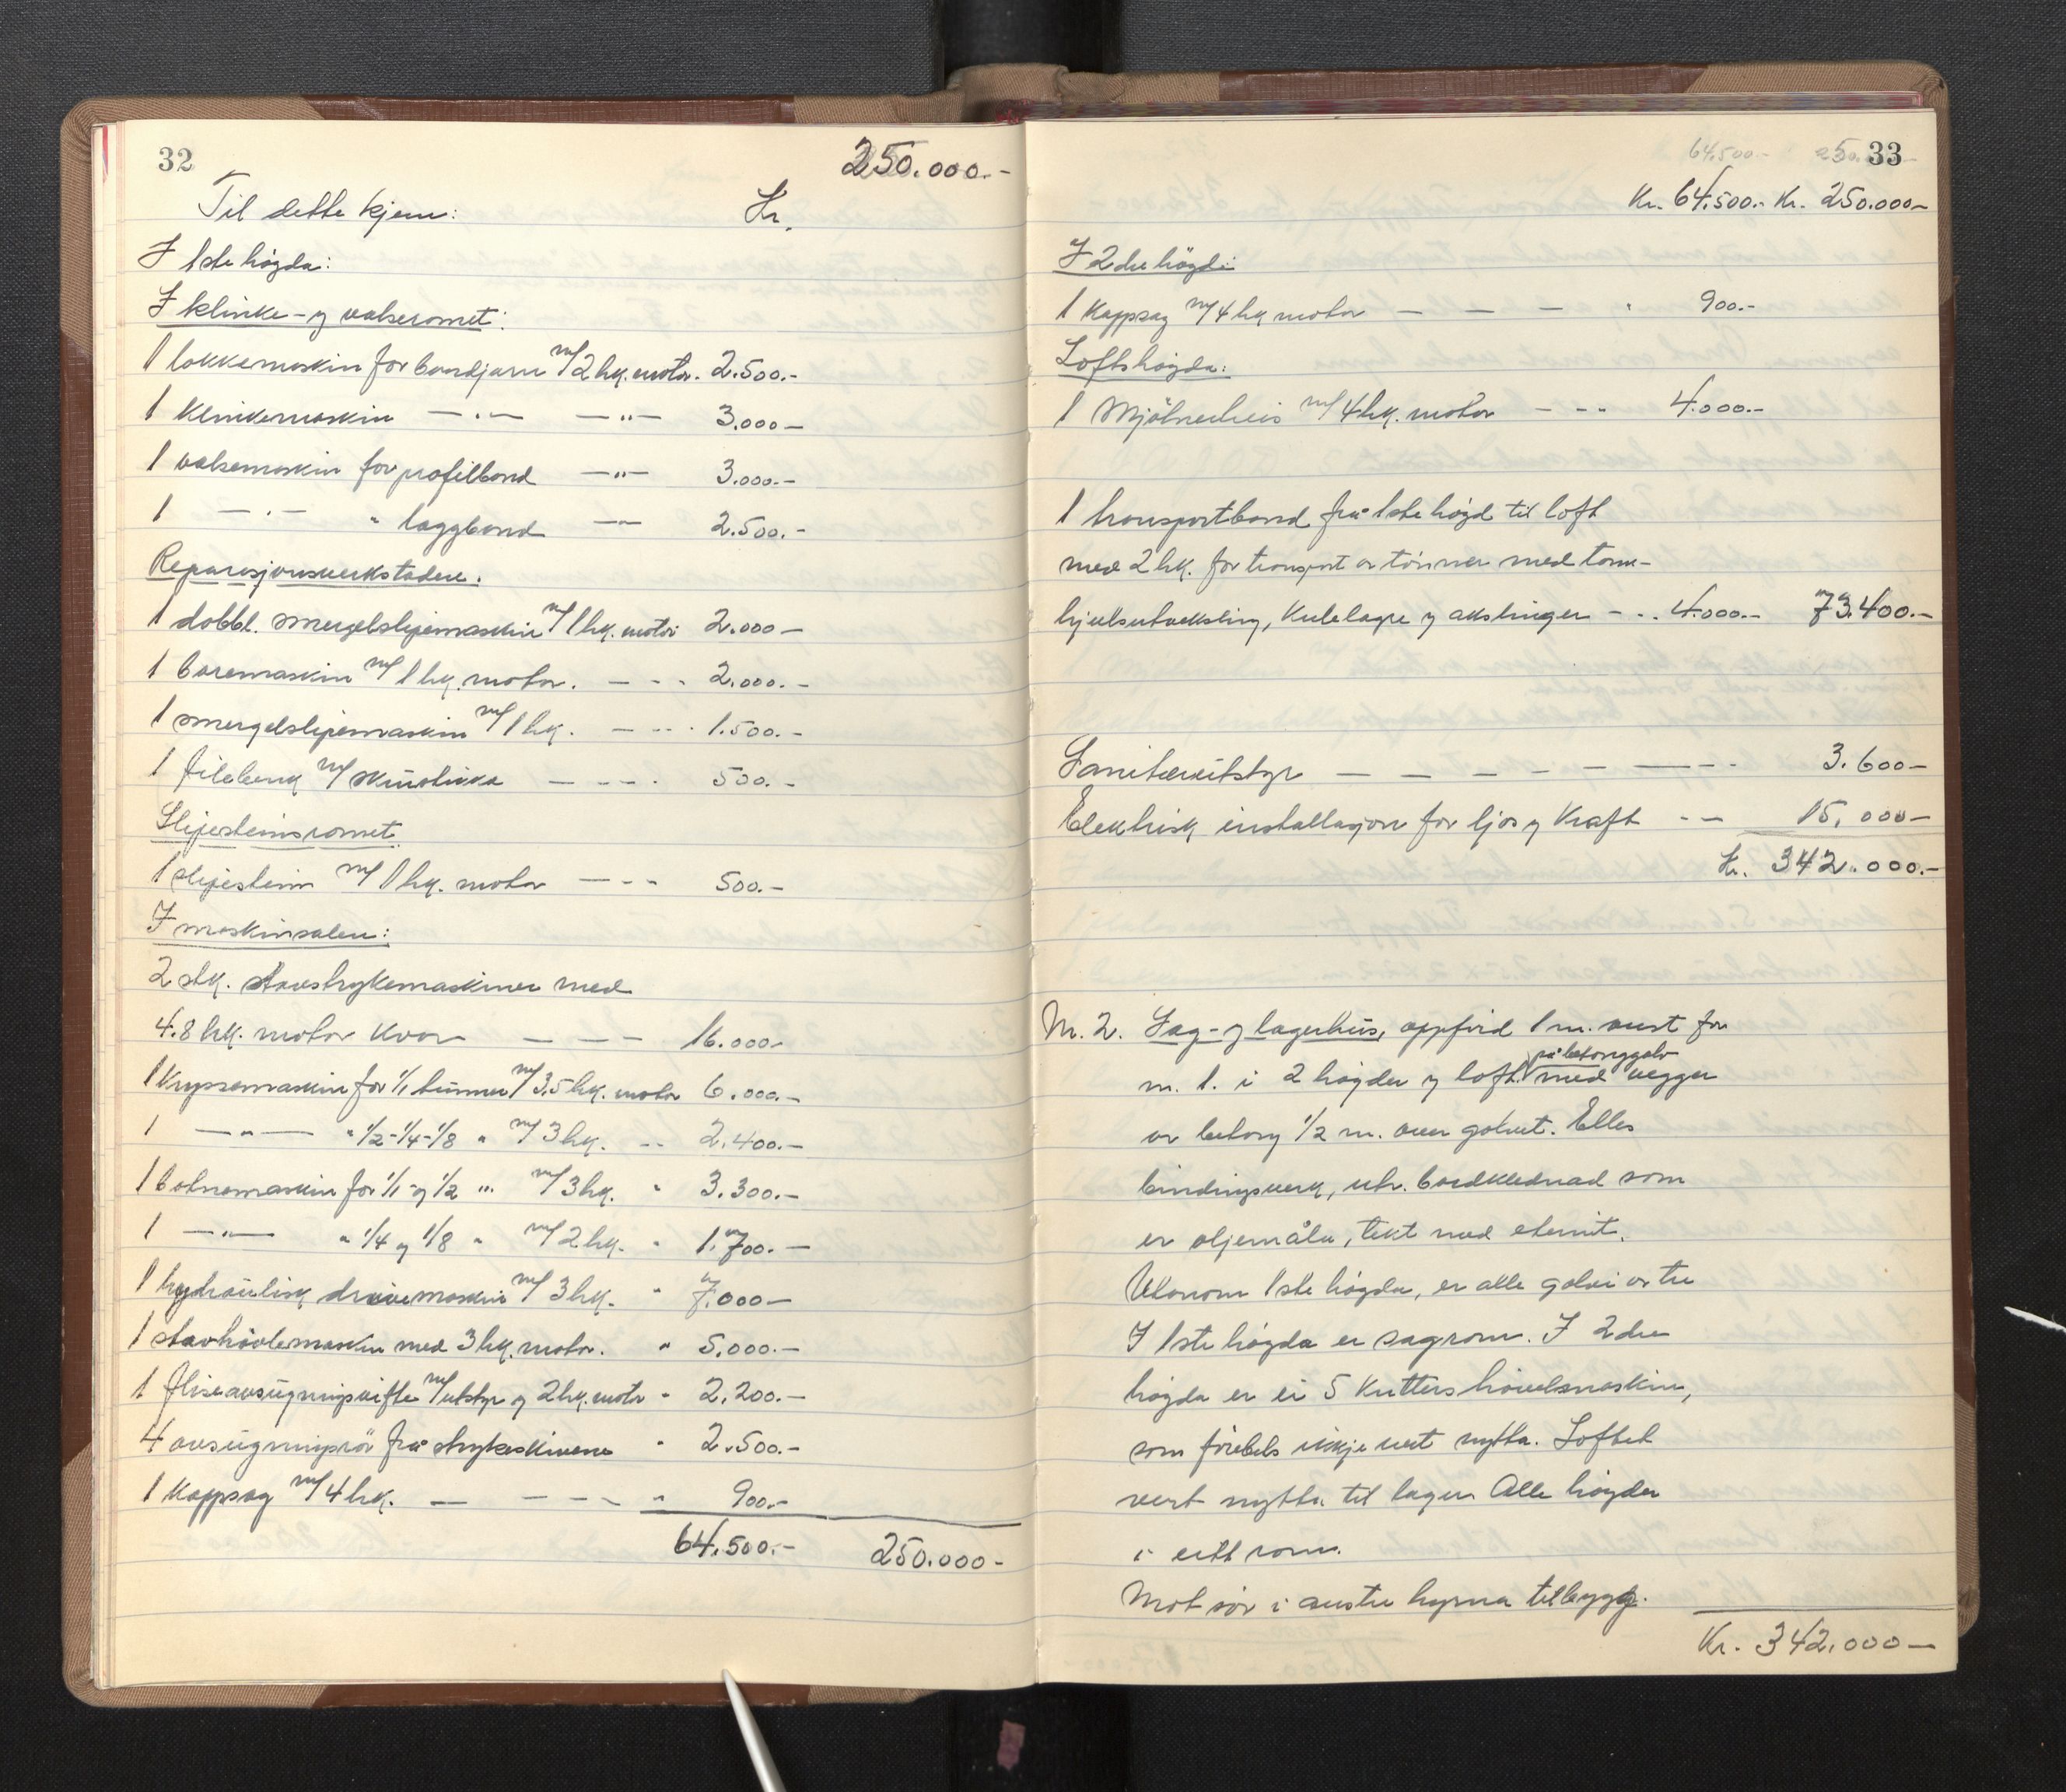 32
250.000.-
Til dette kjem: Kr.
I 1ste høgda:
I klinke- og valseromet:
1 lokkemaskin for bandjarn m/2 hk. motor. 2.500.-
1 Klinkemaskin —"— —"— 3.000-
1 valsemaskin for profilband —"— 3.000.-
1 —"— " laggband —"— 2.500.-
Reparasjonsverkstaden.
1 dobbl. smergelslipemaskin m/1 hk. motor 2.000-
1 boremaskin m/1 hk. motor. — - - 2.000.-
1 smergelslipemaskin m/1 hk. — - - - 1.500.-
1 filebenk m/ skrustikka — - - - 500.-
Slipesteinsromet
1 slipestein m/1 hk. motor — - - 500.-
I maskinsalen:
2 stk. stavstrykemaskiner med
4.8 hk. motor kvar — — — 16.000-
1 Krysemaskin for 1/1 tunner m/3,5 hk. motor 6.000.-
1 —"— " 1/2-1/4-1/8 " m/3 hk. -- 2.400.-
1 botnemaskin for 1/1 og 1/2 " m/3 hk. " 3.300.-
1 —"— " 1/4 og 1/8 " m/2 hk. " 1.700.-
1 hydraulisk drivemaskin m/3 hk. " 7.000-
1 stavhøvlemaskin med 3 hk. motor. " 5.000.-
1 fliseavsugningsvifte m/utstyr og 2 hk. motor " 2.200.-
4 avsugningsrør frå strykeskivene " 2.500.-
1 Kappsag m/4 hk. — - - - " 900.-
64.500.- 250.000-
64.500- 250. 33
Kr. 64.500.- Kr. 250.000-
I 2dre høgd:
1 Kappsag m/4 hk motor — — — " 900.-
Loftshøgda:
1 Mjølnerheis m/4 hk. motor - - - 4.000.-
1 transportband frå 1ste høgd til loft
med 2 hk. for transport av tönner med tann-
hjulsutveksling, Kulelagre og akslinger - - . 4.000.- 73.400.-
Sanitærutstyr — — — — — — - - 3.600-
Elektrisk installasjon for ljos og Kraft - - 15.000-
Kr. 342.000.-
M. 2. Sag- og lagerhus, oppførd 1 m. aust for
på betonggolv
m. 1. i 2 høgder og loft. med vegger
av betong 1/2 m. over golvet. Elles
bindingsverk, utv. bordklednad som
er oljemåla, tekt med eternit.
Utanom 1ste høgda, er alle golvi av tre
I 1ste høgda er sagrom. I 2dre
høgda er ei 5 Kutters høvelmaskin,
som førebels ikkje vert nytta. Loftet
vert nytta til lager Alle høgder
i eitt rom.
Mot sør i austre hyrna tilbygg.
Kr. 342.000-